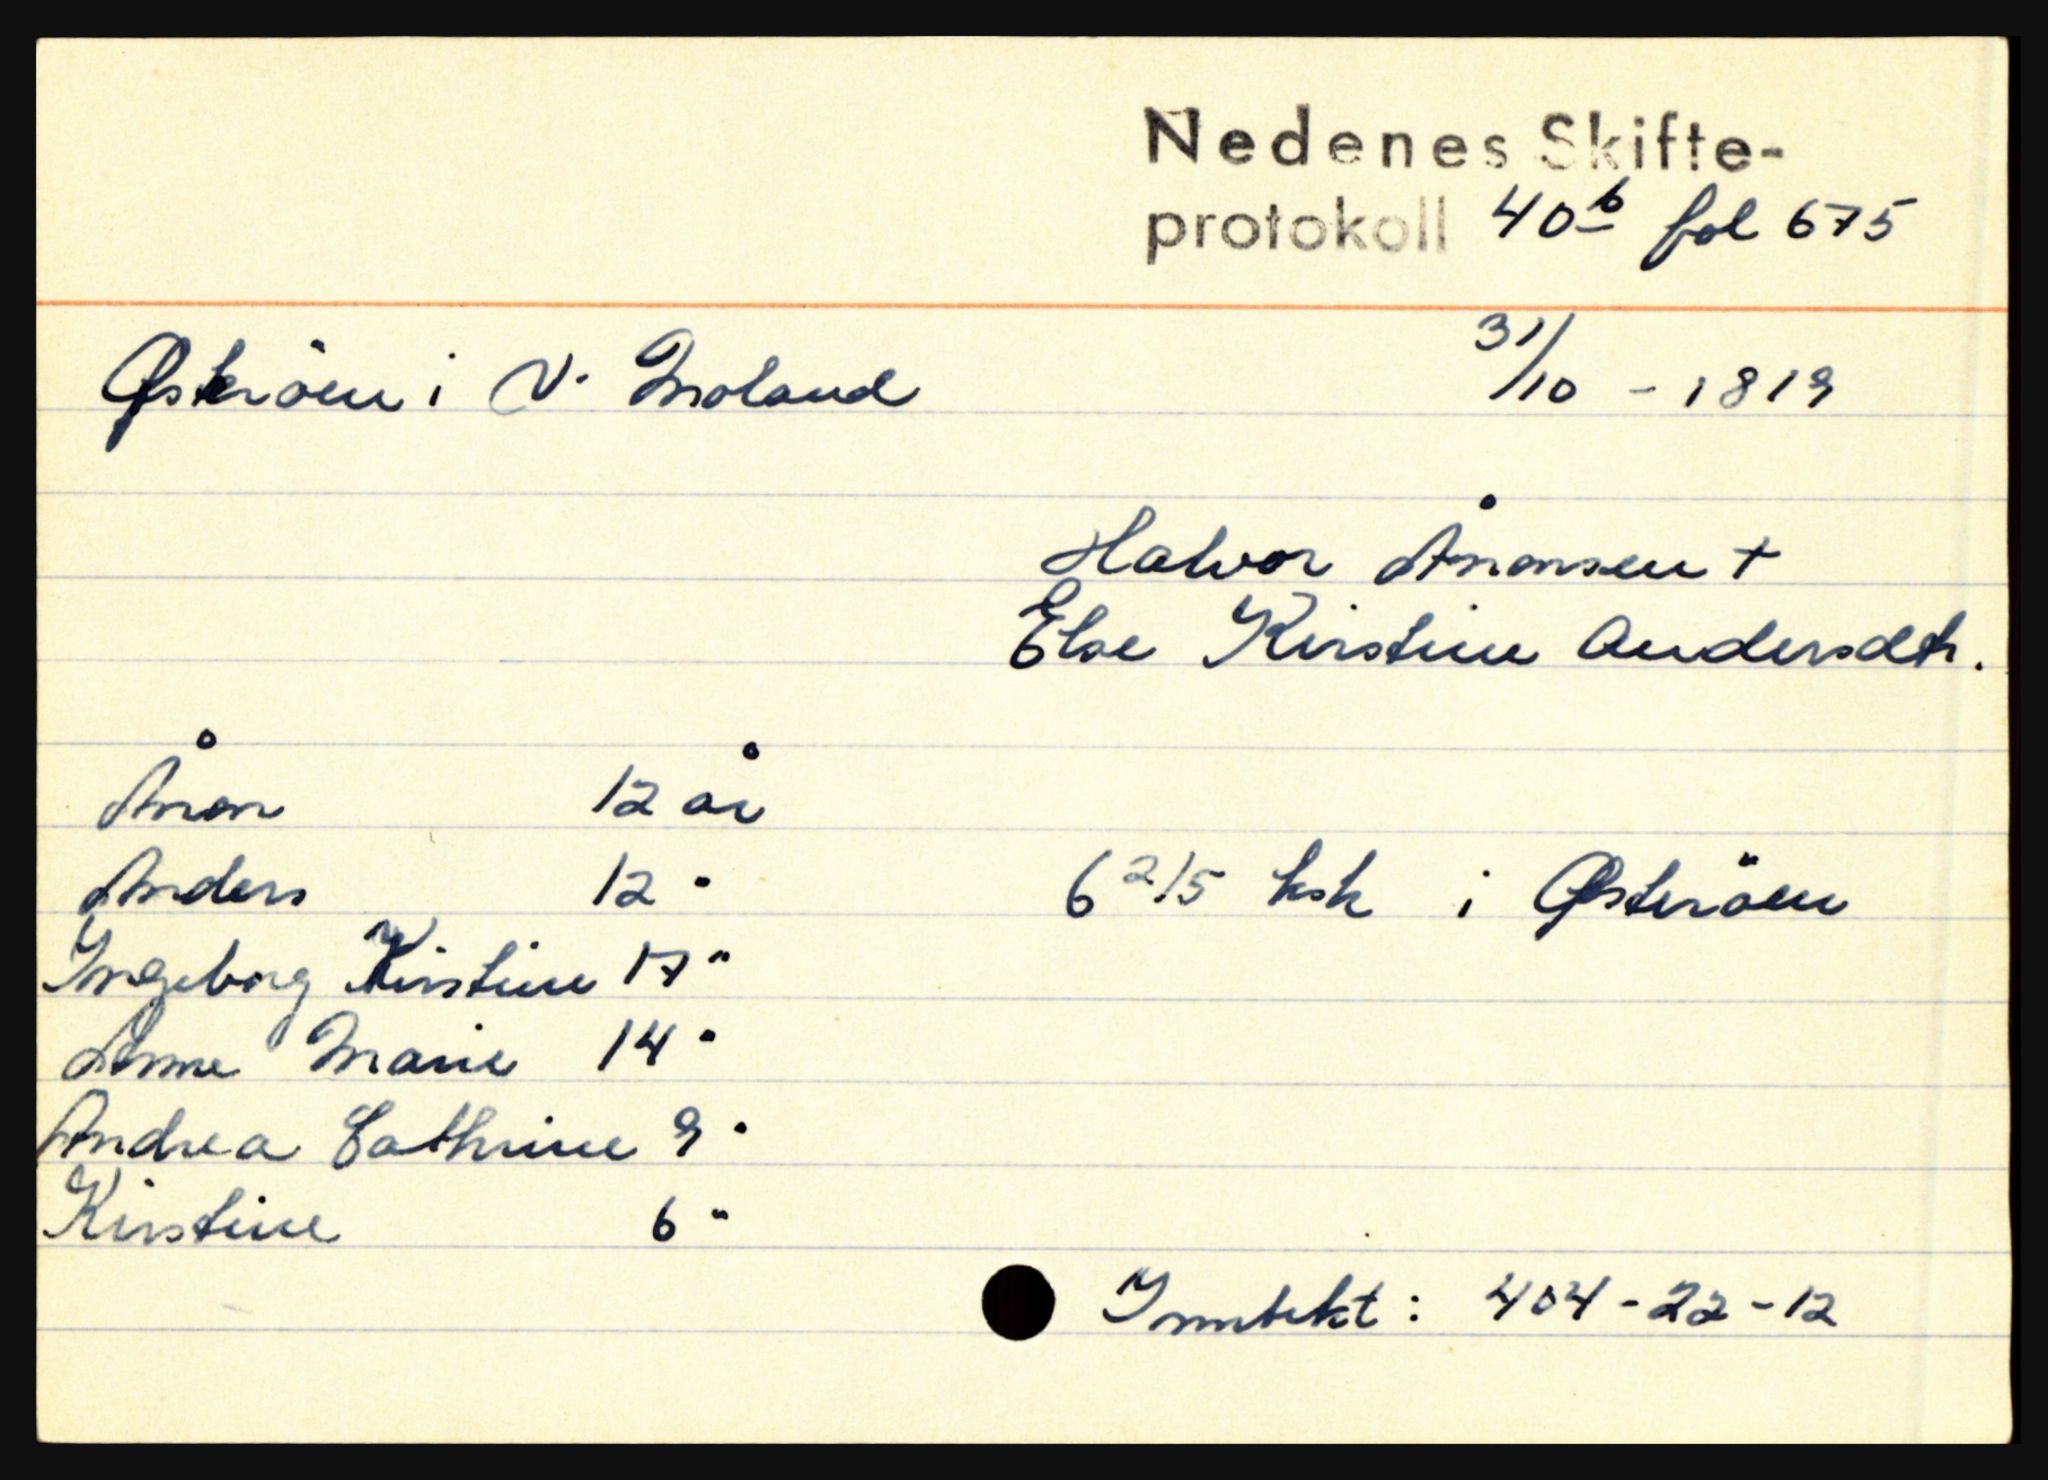 Nedenes Skifte-
protokoll 40b fol 675
Østeröen i N. Moland 31/10 - 1819
Halvor Ånonsen +
Else Kirstine Andersdtr.
Ånon 12 år
Anders 12 " 6 2/5 ksk i Østeröen
Ingeborg Kirstine 17 "
Anne Marie 14 "
Andrea Cathrine 9 "
Kirstine 6 "
Inntekt: 404-22-12